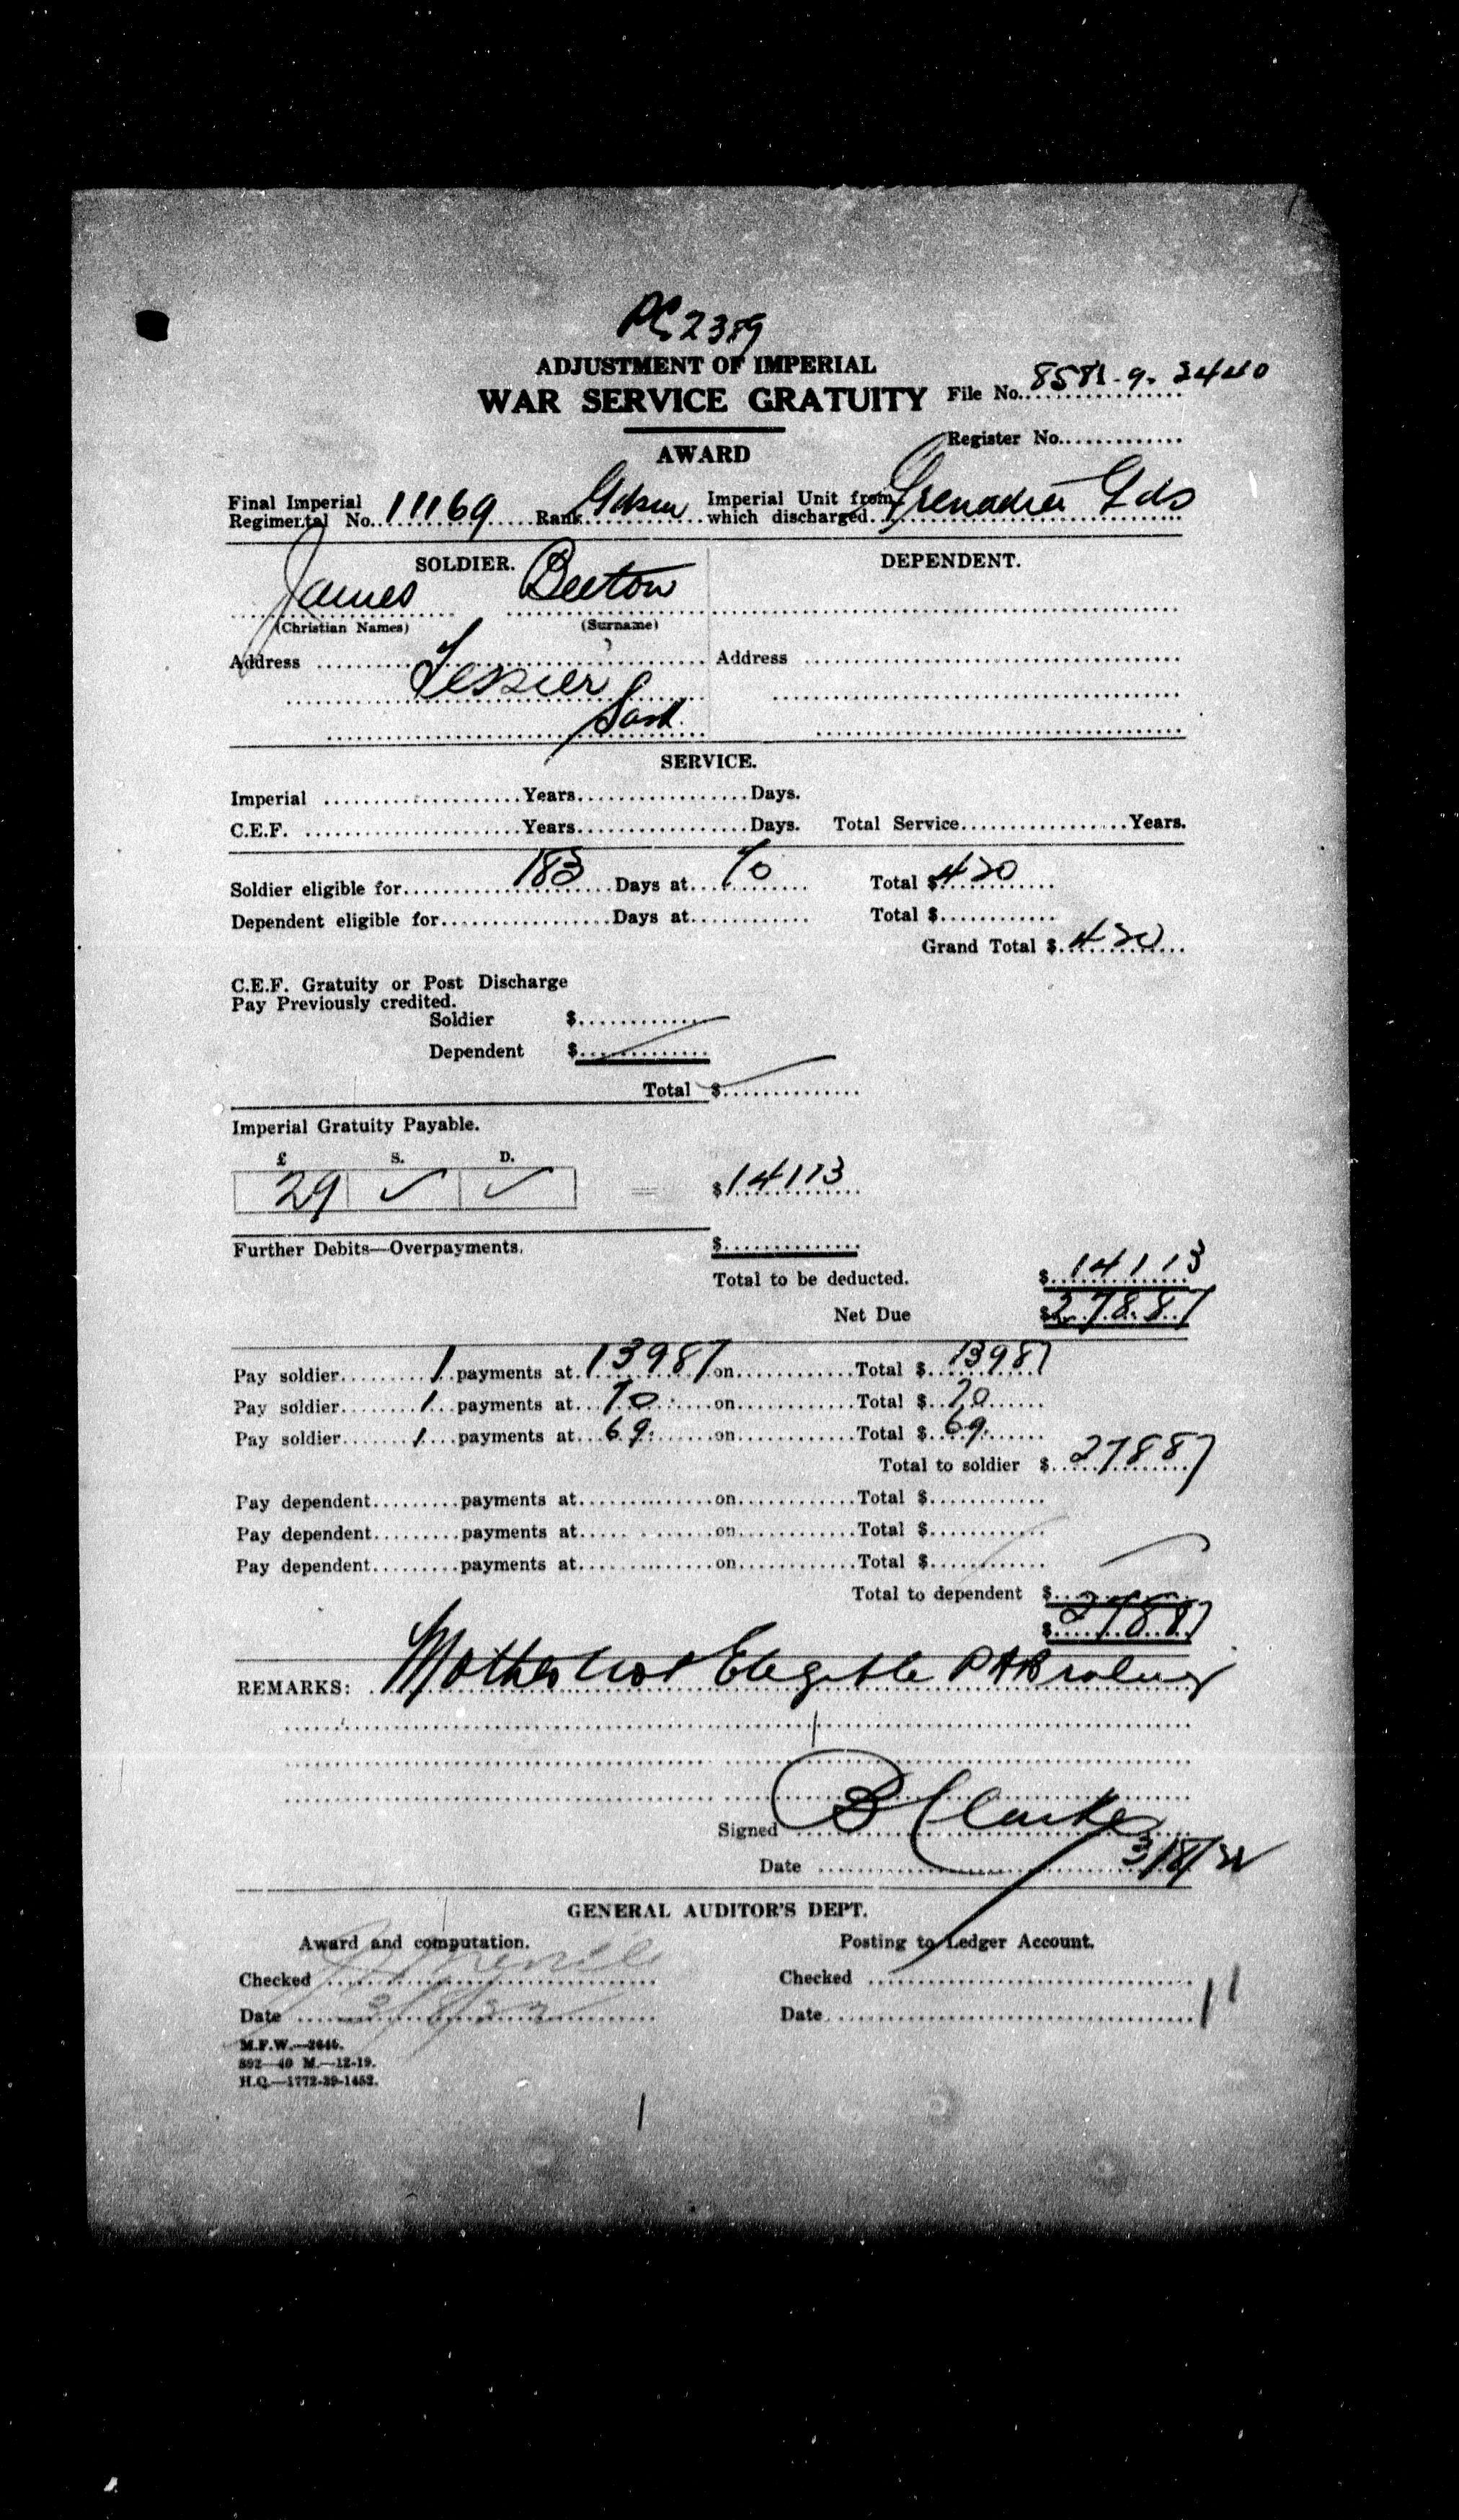 PC 2389
ADJUSTMENT OF IMPERIAL
WAR SERVICE GRATUITY File No. 8581-9-2440
Register No.
AWARD
Final Imperial Regimental No. 11169 Rank Gdsm Imperial Unit from which discharged Grenadier Gds
SOLDIER. DEPENDENT.
James Beeton
(Christian Names) (Surname)
Address Tessier Address
Sask.
SERVICE.
Imperial Years Days.
C.E.F. Years Days. Total Service Years.
Soldier eligible for 183 Days at 70 Total $ 420
Dependent eligible for Days at Total $
Grand Total $ 420
C.E.F. Gratuity or Post Discharge
Pay Previously credited.
Soldier $
Dependent $
Total $
Imperial Gratuity Payable.
£ S. D.
29 ✓ ✓ = $ 141 13
Further Debits—Overpayments. $
Total to be deducted. $ 141 13
Net Due $ 278.87
Pay soldier 1 payments at 139 87 on Total $ 139 87
Pay soldier 1 payments at 70 on Total $ 70
Pay soldier 1 payments at 69. on Total $ 69.
Total to soldier $ 278 87
Pay dependent payments at on Total $
Pay dependent payments at on Total $
Pay dependent payments at on Total $
Total to dependent $
$ 278 87
REMARKS: Mother not Eligible PAB ruling
Signed B Clarke
Date 3/8/22
GENERAL AUDITOR'S DEPT.
Award and computation. Posting to Ledger Account.
Checked Checked
Date 3/8/22 Date
M.F.W.—2646.
892—40 M.—12-19.
H.Q.—1772-39-1452.